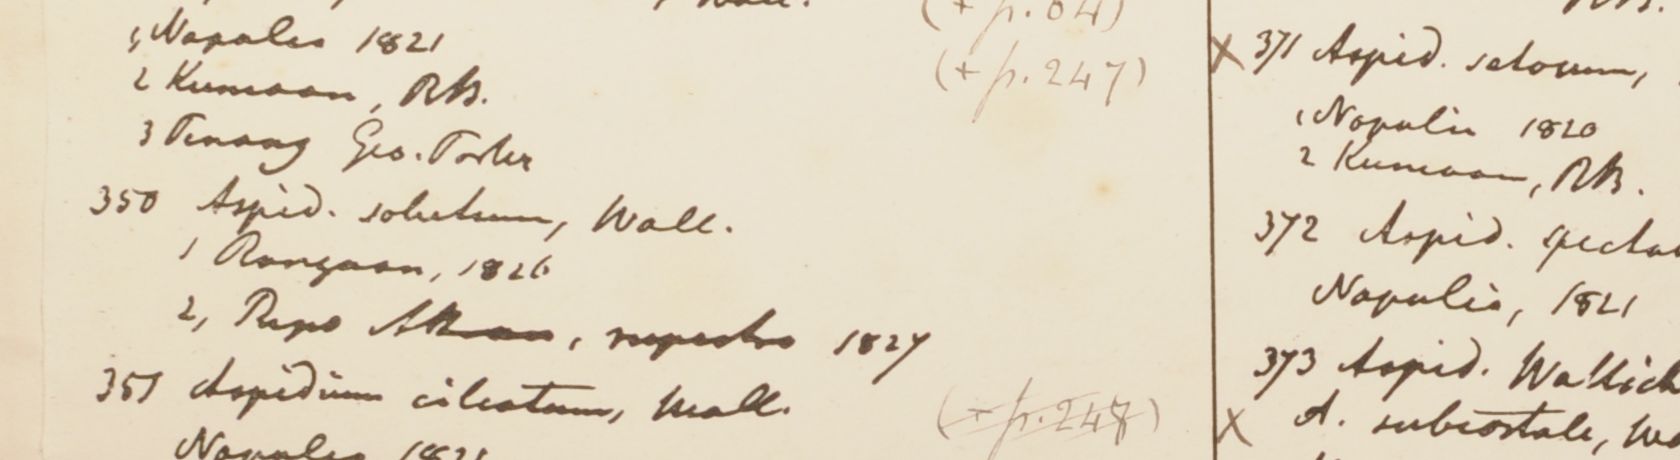 Wall. (+ p. 64)
1, Napalia 1821 (+ p. 247)
2 Kumaon, RB.
3 Penang Geo. Porter
350 Aspid. solutum, Wall.
1 Rangoon, 1826
2, Ripa, rupestra 1827
351 Aspidium ciliatum, Wall. (+ p. 247)
Napalia 1821
X 371 Aspid. setosum,
1 Napalia 1820
2 Kumaon, RB.
372 Aspid. specta
Napalia, 1821
373 Aspid. Wallich
X A. subcostale, Wa